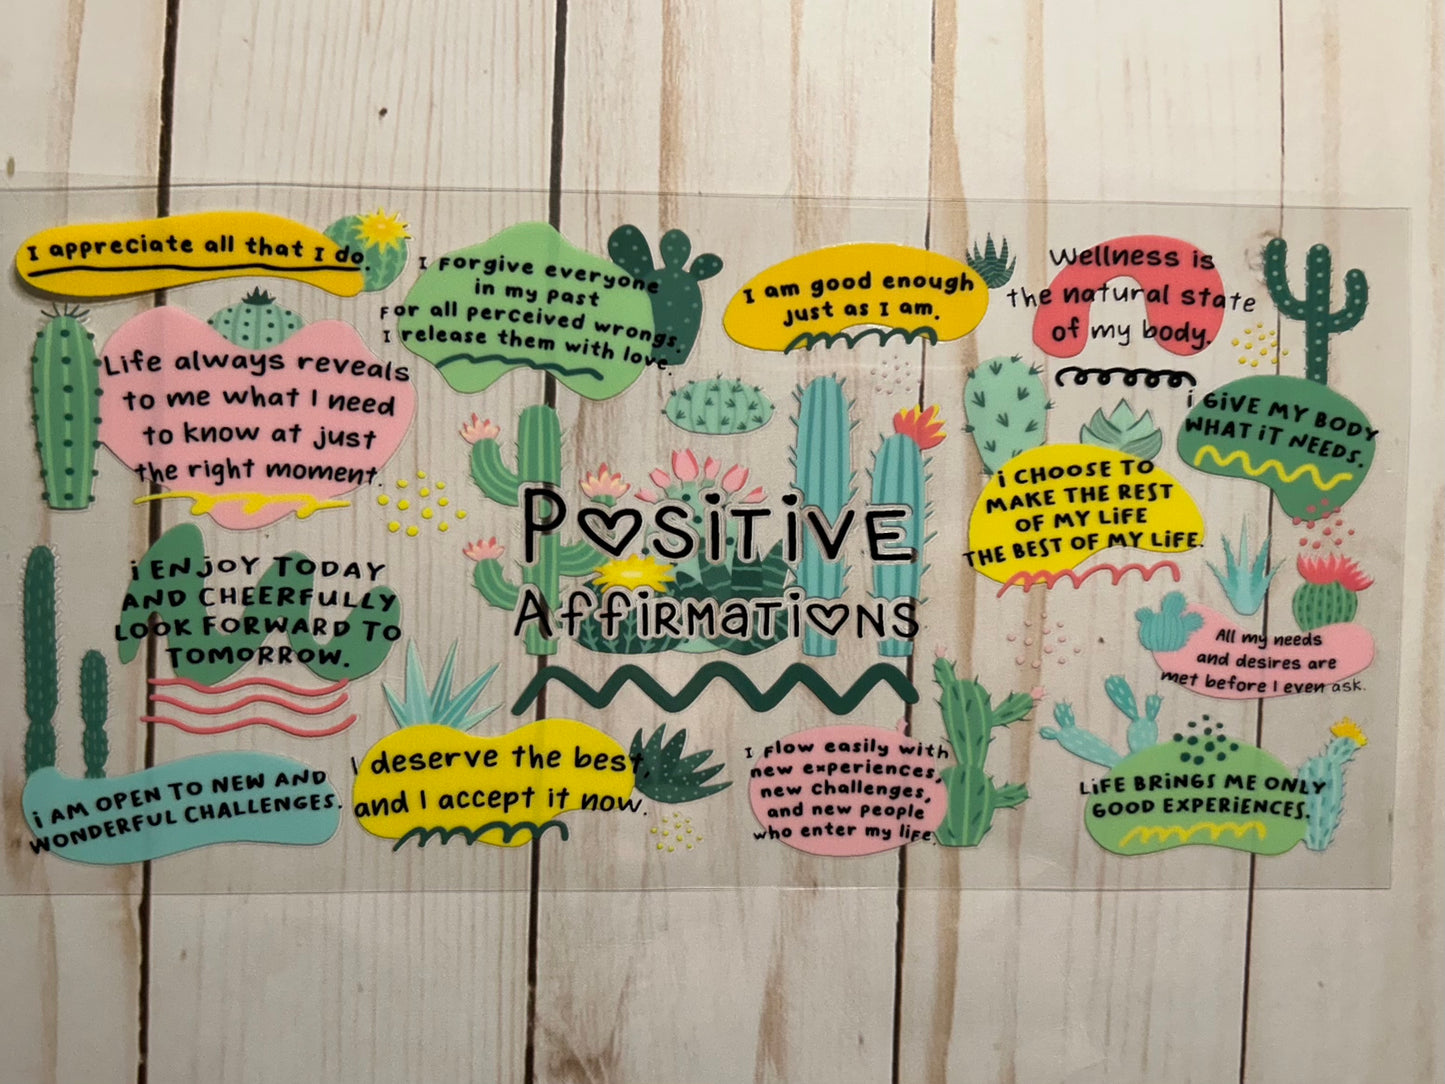 I appreciate all that I do.
I Forgive everyone
in my past
For all perceived wrongs.
I release them with love.
I am good enough
just as I am.
Wellness is
the natural state
of my body.
Life always reveals
to me what I need
to know at just
the right moment.
i GiVE MY BODY
WHAT iT NEEDS.
i CHOOSE TO
MAKE THE REST
OF MY LiFE
THE BEST OF MY LiFE.
POSiTiVE
AFFiRMATiONS
i ENJOY TODAY
AND CHEERFULLY
LOOK FORWARD TO
TOMORROW.
All my needs
and desires are
met before I even ask.
i AM OPEN TO NEW AND
WONDERFUL CHALLENGES.
I deserve the best,
and I accept it now.
I Flow easily with
new experiences,
new challenges,
and new people
who enter my life.
LiFE BRiNGS ME ONLY
GOOD EXPERiENCES.